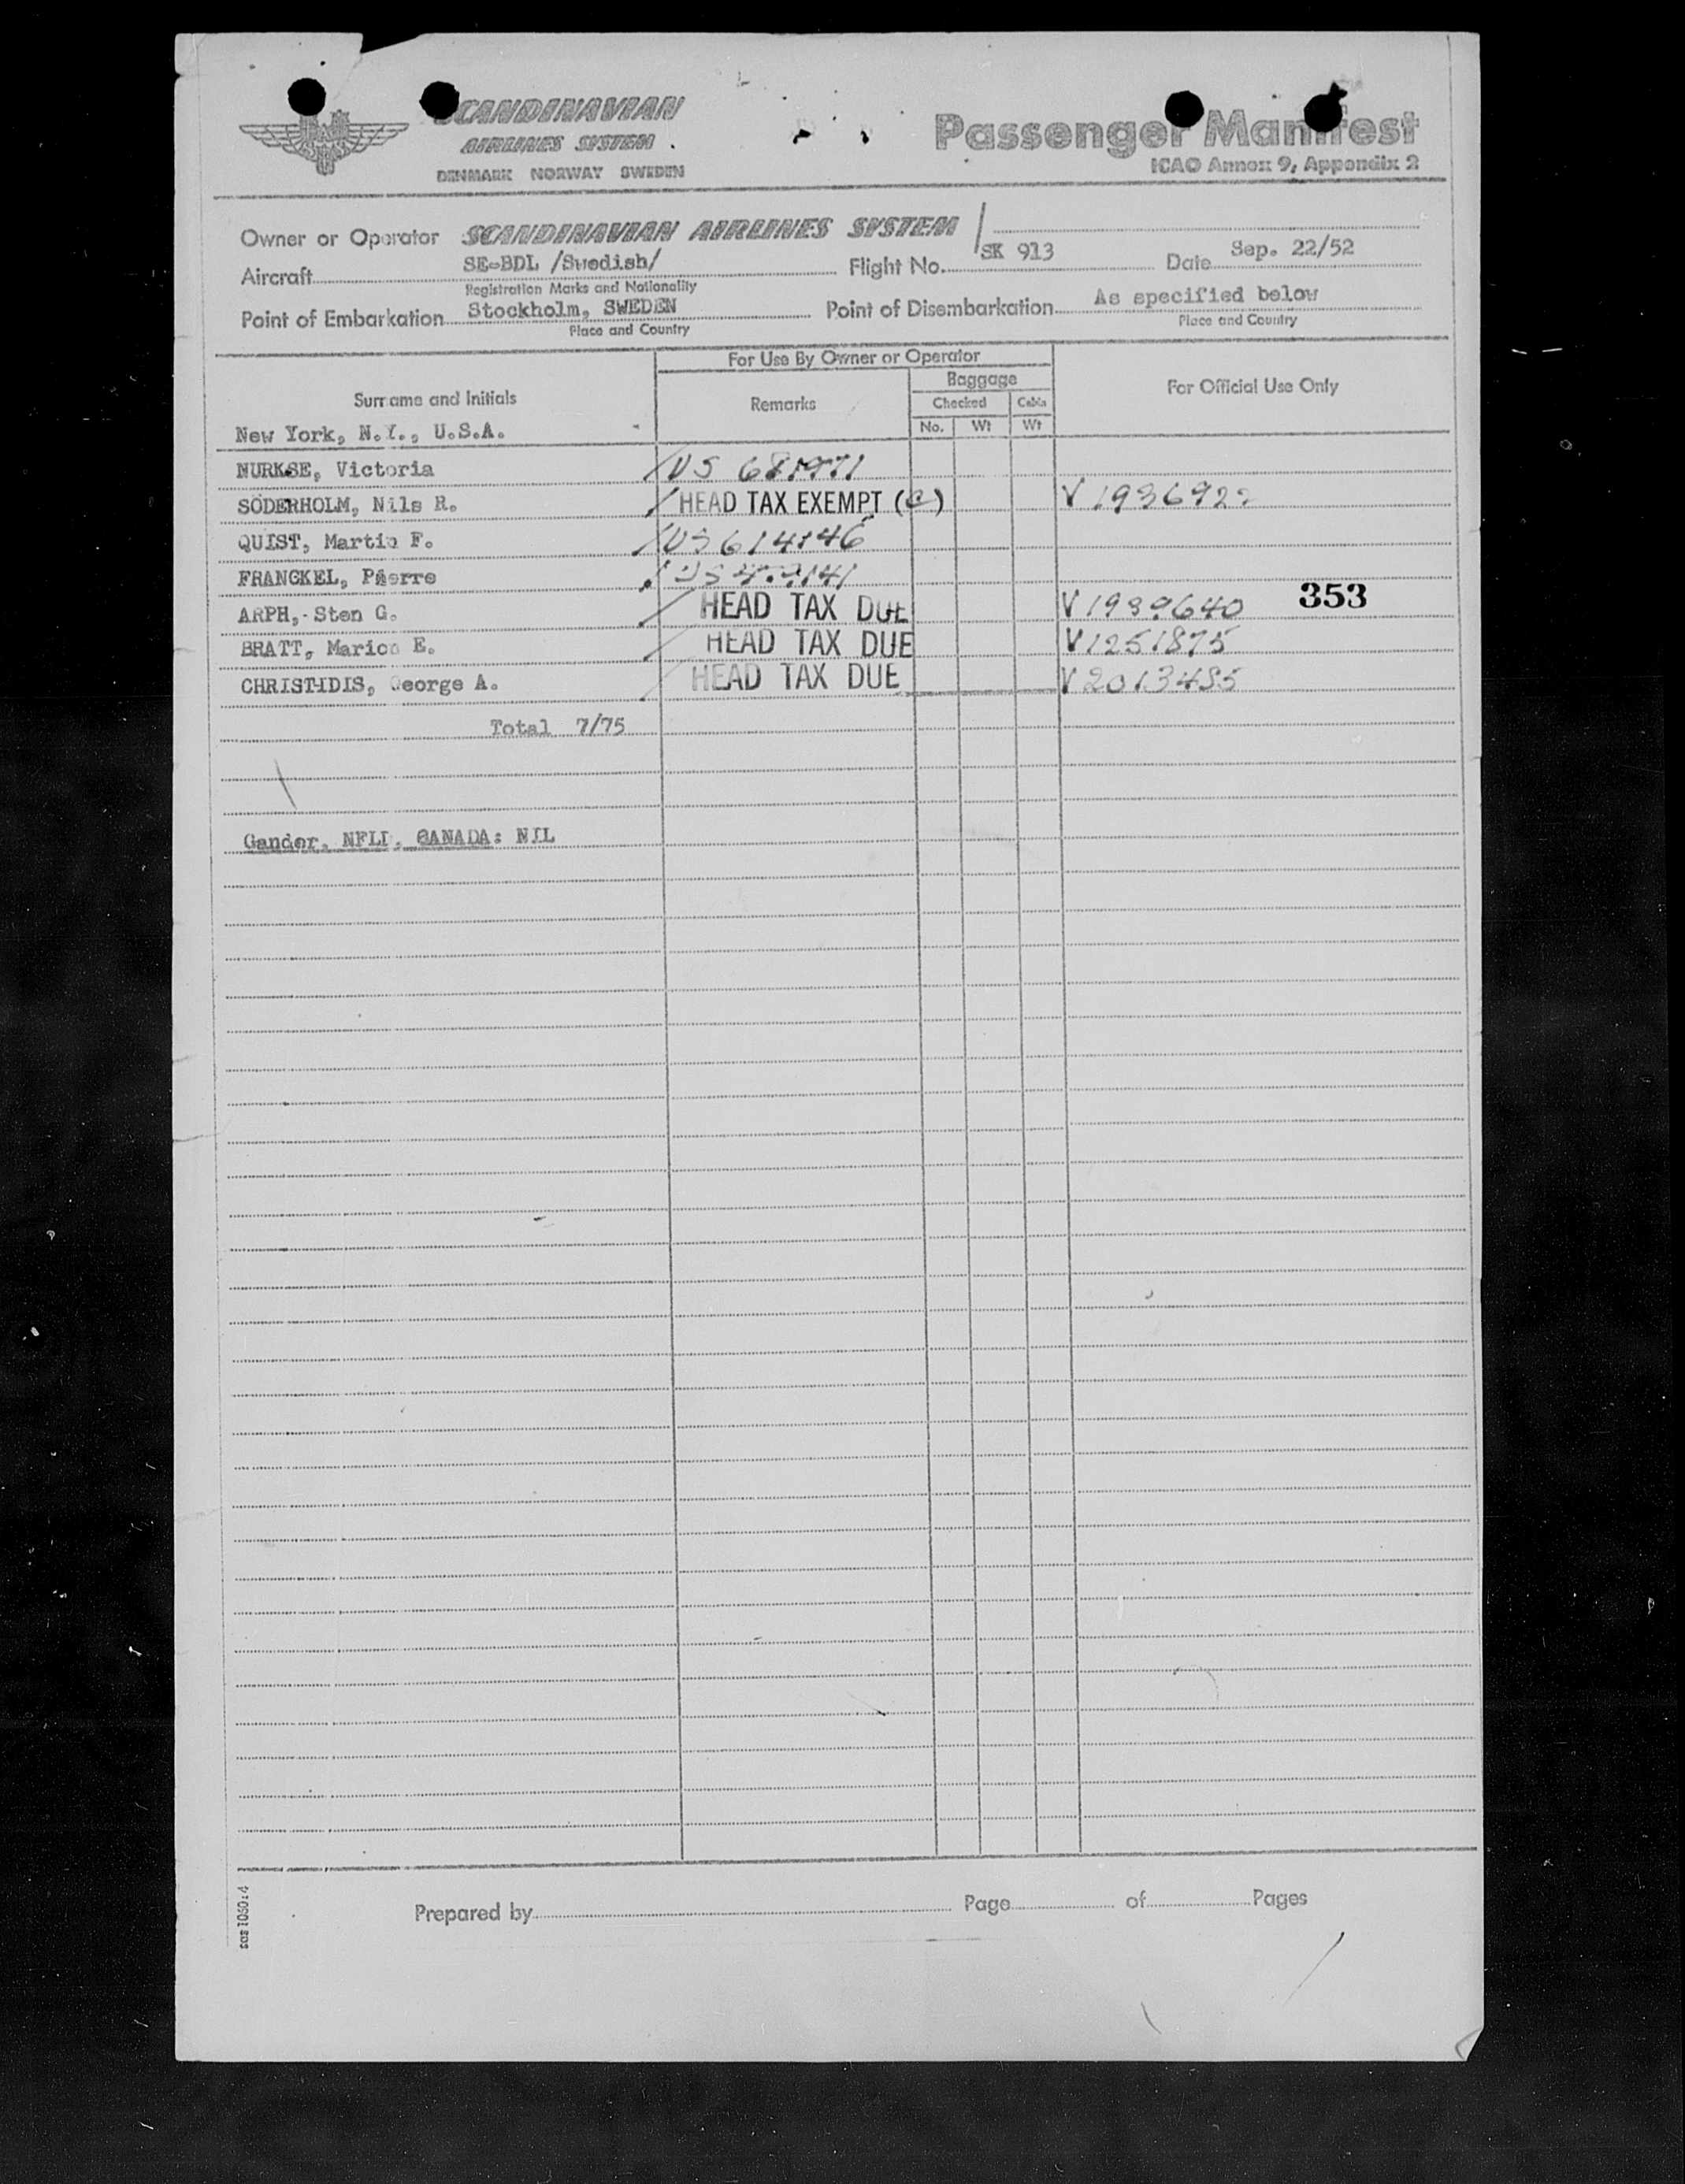 SCANDINAVIAN
AIRLINES SYSTEM
DENMARK NORWAY SWEDEN
Passenger Manifest
ICAO Annex 9, Appendix 2
Owner or Operator SCANDINAVIAN AIRLINES SYSTEM
Aircraft SE-BDL /Swedish/ Flight No. SK 913 Date Sep. 22/52
Registration Marks and Nationality
Point of Embarkation Stockholm, SWEDEN Point of Disembarkation As specified below
Place and Country Place and Country
For Use By Owner or Operator
Surname and Initials Remarks Baggage For Official Use Only
Checked Cabin
No. Wt Wt
New York, N.Y., U.S.A.
NURKSE, Victoria US
SÖDERHOLM, Nils R. HEAD TAX EXEMPT (c) V 1936922
QUIST, Martin F. US 614146
FRANCKEL, Pierre US
353
ARPH, Sten G. HEAD TAX DUE V 1939640
BRATT, Marico E. HEAD TAX DUE V 1251875
CHRISTIDIS, George A. HEAD TAX DUE V 2013485
Total 7/75
Gander, NFLD, CANADA: NIL
sas 1050:4
Prepared by Page of Pages